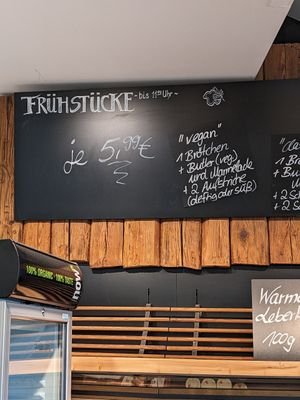 FRÜHSTÜCKE ~ bis 11 Uhr ~
je 5,99 €
"vegan"
1 Brötchen
+ Butter (veg)
und Marmelade
+ 2 Aufstriche
(deftig oder süß)
1 Br
+ Bu
+ 2
+ 2 S
100% ORGANIC · 100% TASTE
now
Warme
Leberk
100g